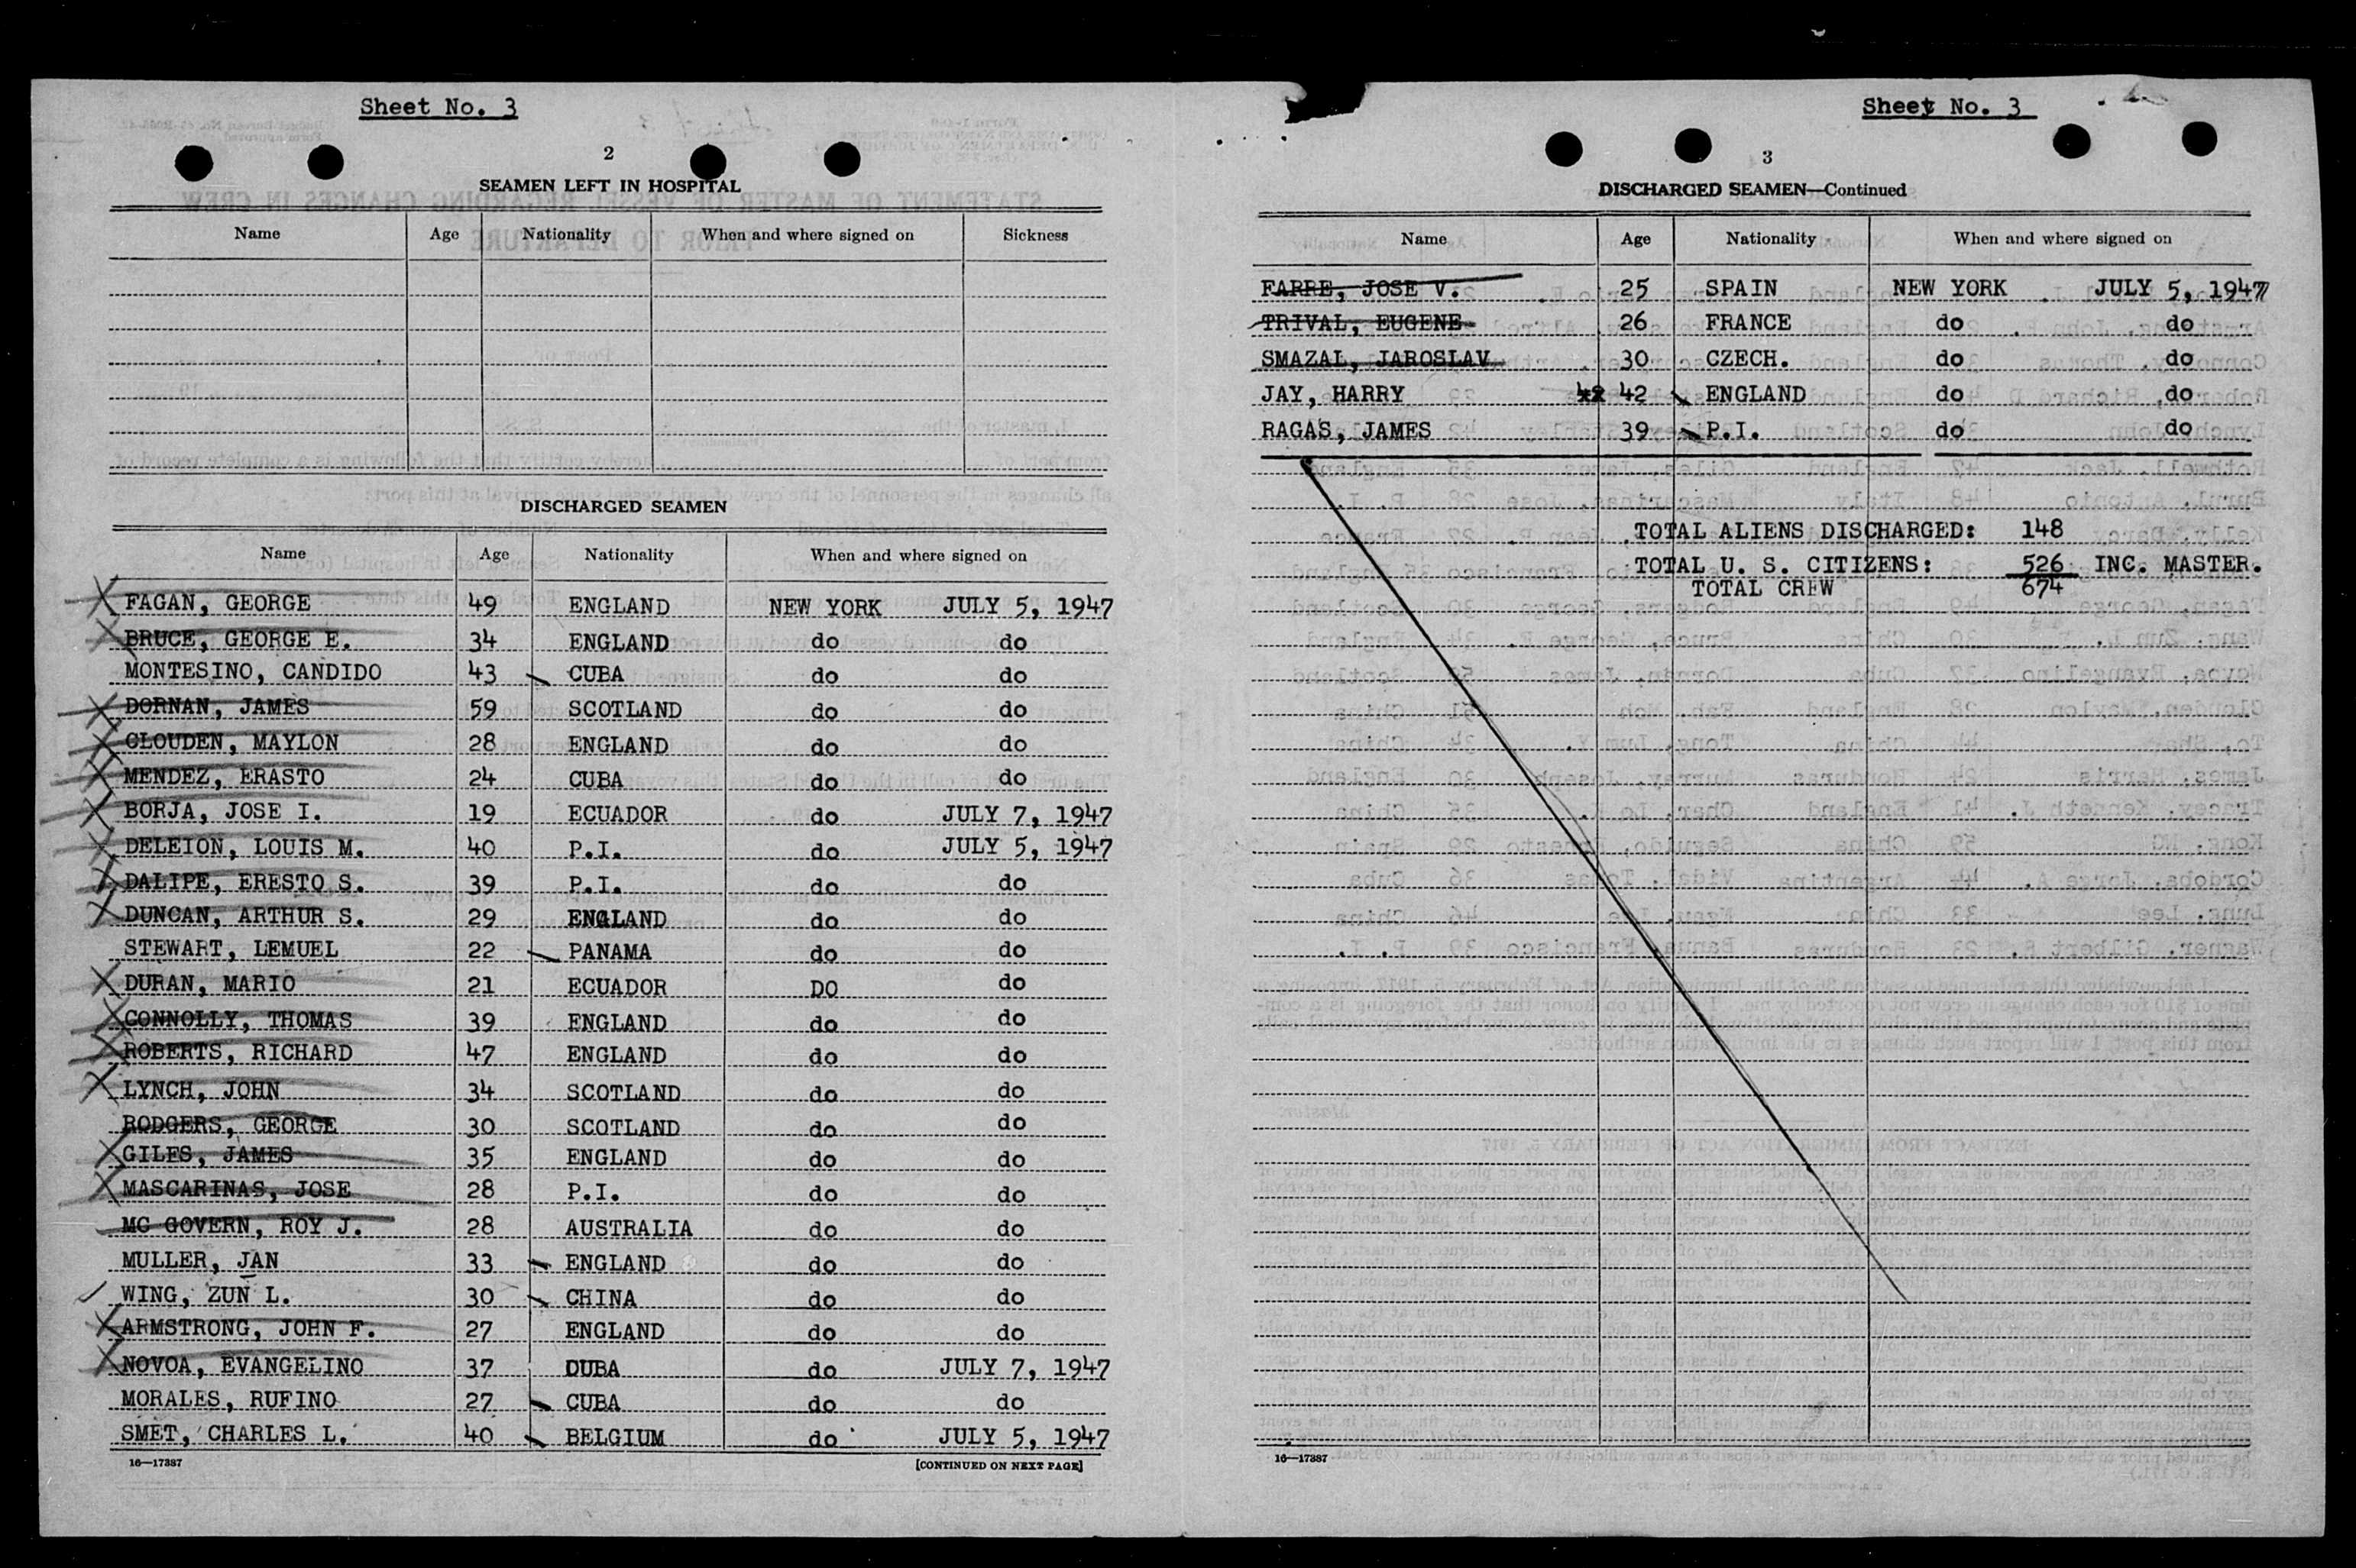 Sheet No. 3
2
SEAMEN LEFT IN HOSPITAL
Name Age Nationality When and where signed on Sickness
DISCHARGED SEAMEN
Name Age Nationality When and where signed on
FAGAN, GEORGE 49 ENGLAND NEW YORK JULY 5, 1947
BRUCE, GEORGE E. 34 ENGLAND do do
MONTESINO, CANDIDO 43 CUBA do do
DORNAN, JAMES 59 SCOTLAND do do
CLOUDEN, MAYLON 28 ENGLAND do do
MENDEZ, ERASTO 24 CUBA do do
BORJA, JOSE I. 19 ECUADOR do JULY 7, 1947
DELEION, LOUIS M. 40 P.I. do JULY 5, 1947
DALIPE, ERESTO S. 39 P.I. do do
DUNCAN, ARTHUR S. 29 ENGLAND do do
STEWART, LEMUEL 22 PANAMA do do
DURAN, MARIO 21 ECUADOR DO do
CONNOLLY, THOMAS 39 ENGLAND do do
ROBERTS, RICHARD 47 ENGLAND do do
LYNCH, JOHN 34 SCOTLAND do do
RODGERS, GEORGE 30 SCOTLAND do do
GILES, JAMES 35 ENGLAND do do
MASCARINAS, JOSE 28 P.I. do do
MC GOVERN, ROY J. 28 AUSTRALIA do do
MULLER, JAN 33 ENGLAND do do
WING, ZUN L. 30 CHINA do do
ARMSTRONG, JOHN F. 27 ENGLAND do do
NOVOA, EVANGELINO 37 DUBA do JULY 7, 1947
MORALES, RUFINO 27 CUBA do do
SMET, CHARLES L. 40 BELGIUM do JULY 5, 1947
16—17387 [CONTINUED ON NEXT PAGE]
Sheet No. 3
3
DISCHARGED SEAMEN—Continued
Name Age Nationality When and where signed on
FARRE, JOSE V. 25 SPAIN NEW YORK JULY 5, 1947
TRIVAL, EUGENE 26 FRANCE do do
SMAZAL, JAROSLAV 30 CZECH. do do
JAY, HARRY 42 ENGLAND do do
RAGAS, JAMES 39 P.I. do do
TOTAL ALIENS DISCHARGED: 148
TOTAL U. S. CITIZENS: 526 INC. MASTER.
TOTAL CREW 674
16—17387